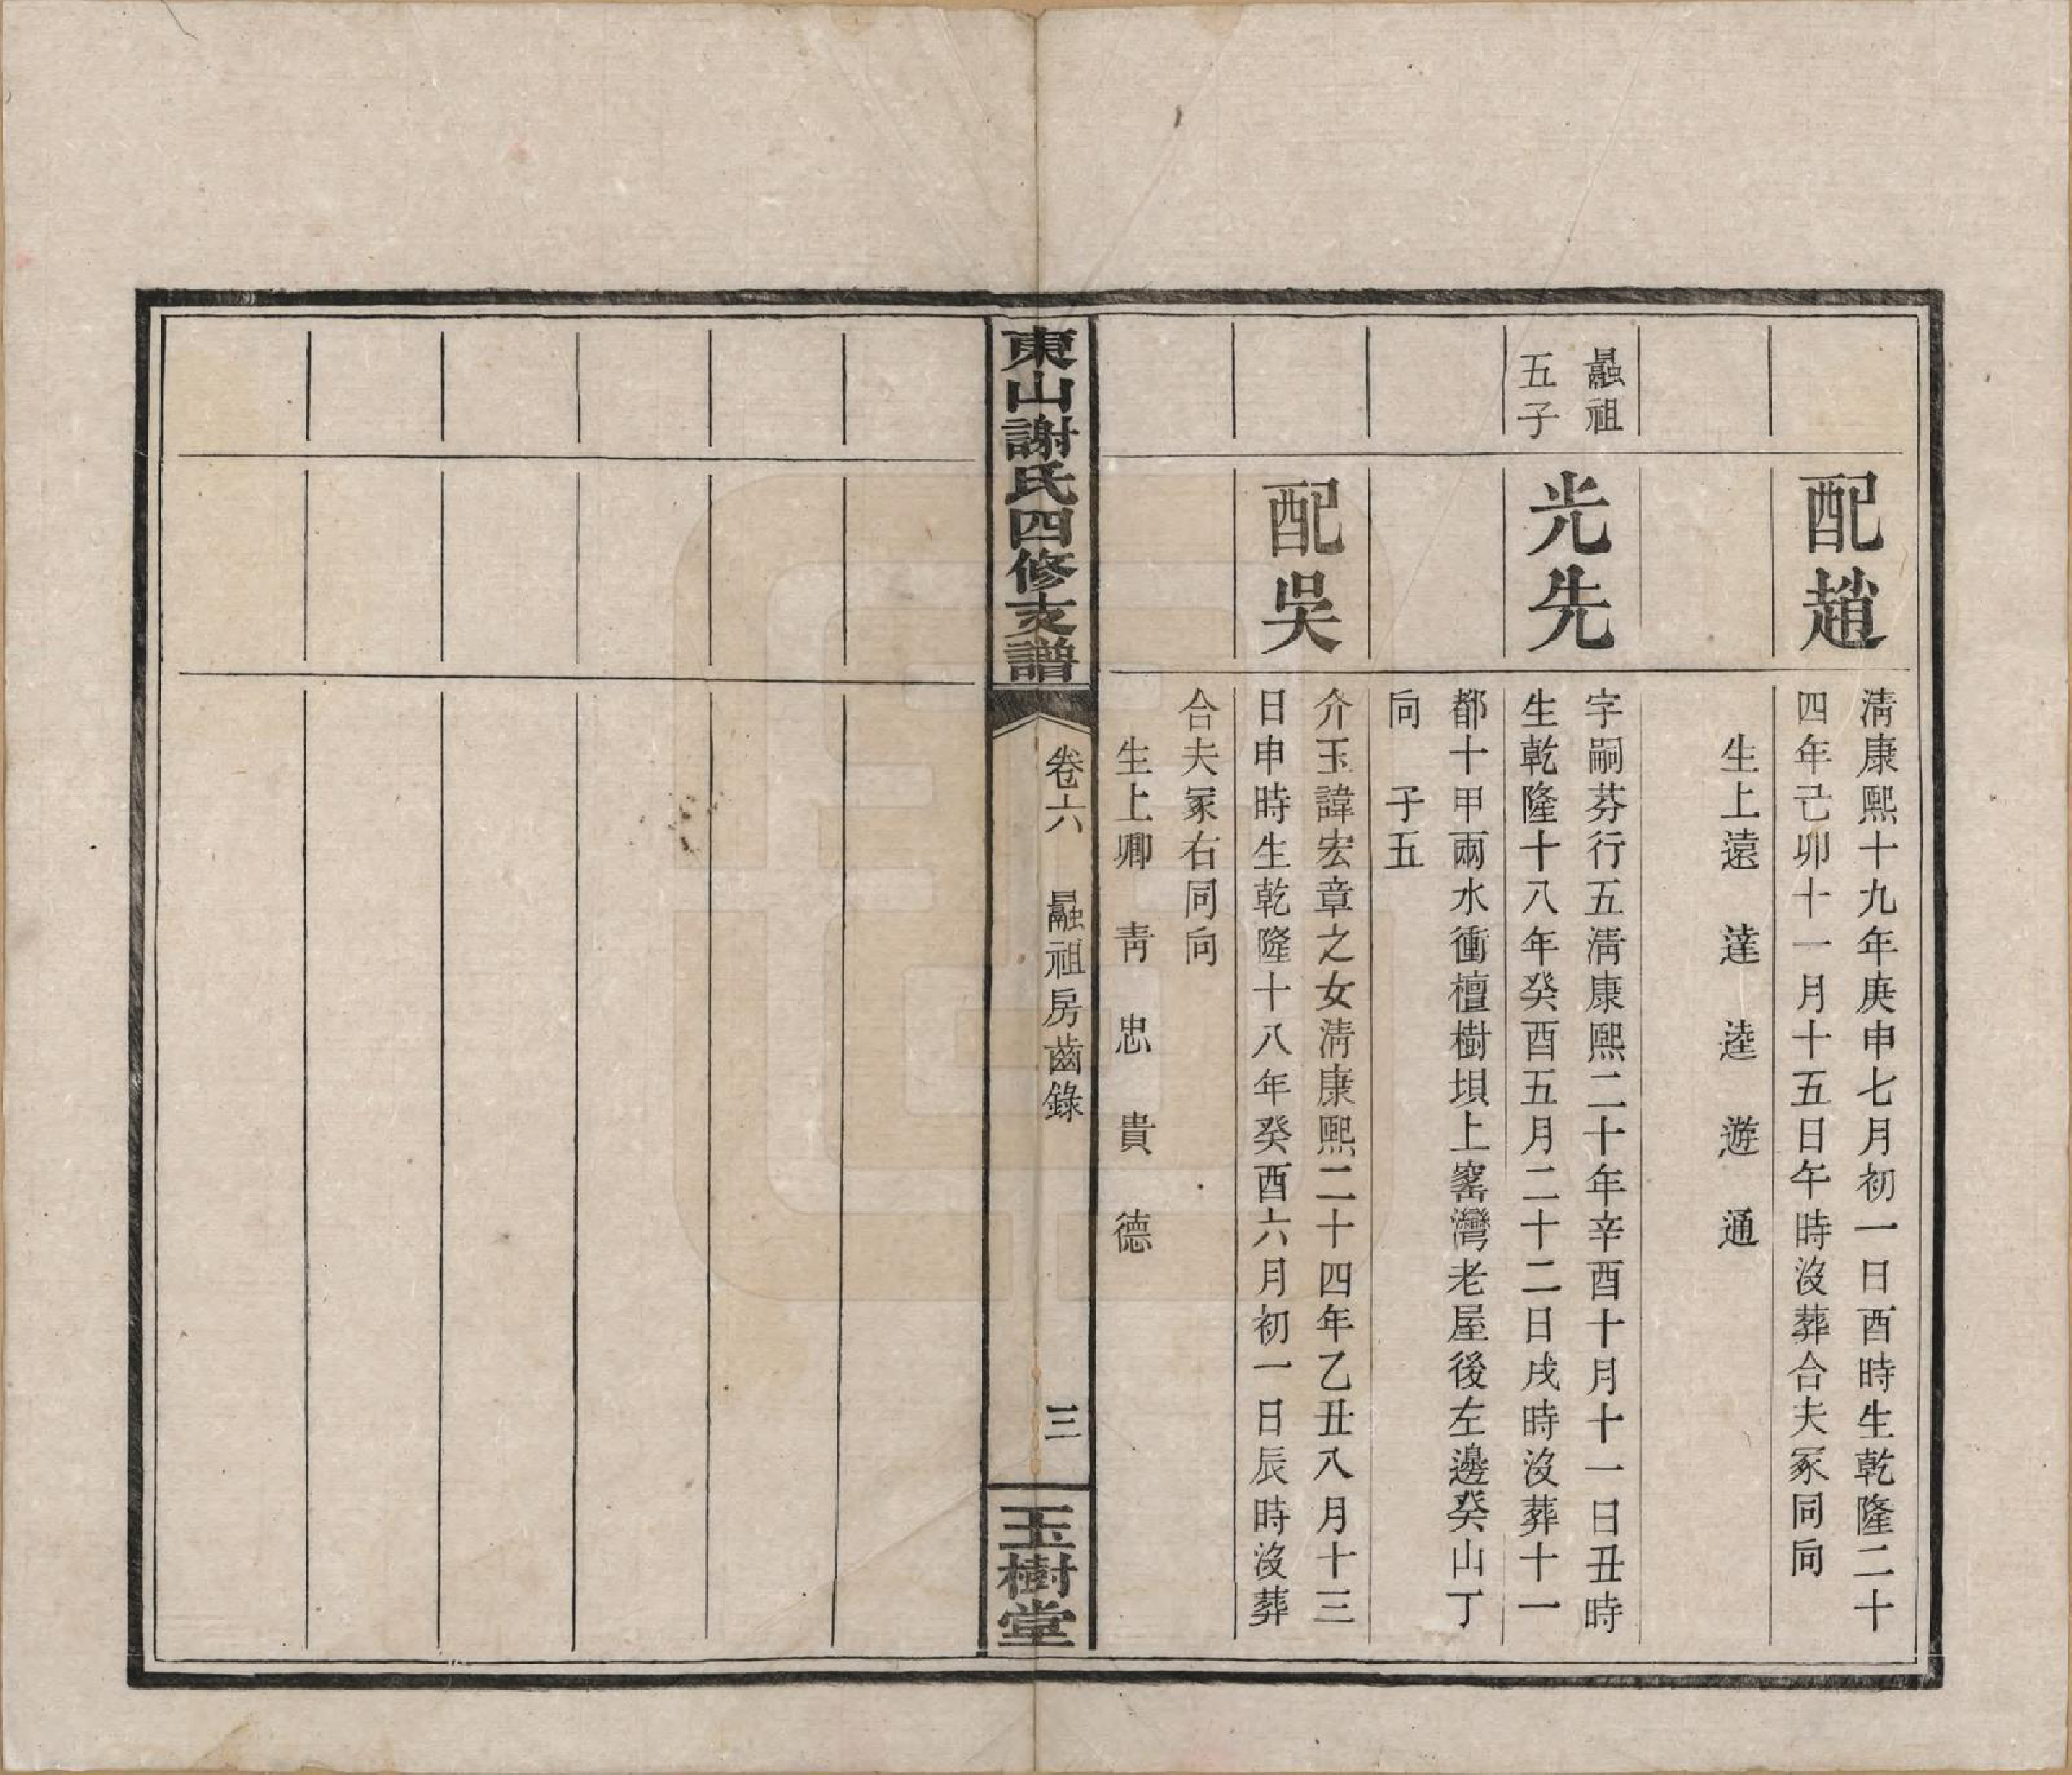 配趙
清康熙十九年庚申七月初一日酉時生乾隆二十
四年己卯十一月十五日午時沒葬合夫冢同向
生上遠　達　逵　遊　通
朂祖
五子
光先
字嗣芬行五清康熙二十年辛酉十月十一日丑時
生乾隆十八年癸酉五月二十二日戌時沒葬十一
都十甲兩水衝檀樹垻上窰灣老屋後左邊癸山丁
向　子五
配吳
介玉諱宏章之女清康熙二十四年乙丑八月十三
日申時生乾隆十八年癸酉六月初一日辰時沒葬
合夫冢右同向
生上卿　靑　忠　貴　德
東山謝氏四修支譜
卷六　朂祖房齒錄
三
玉樹堂